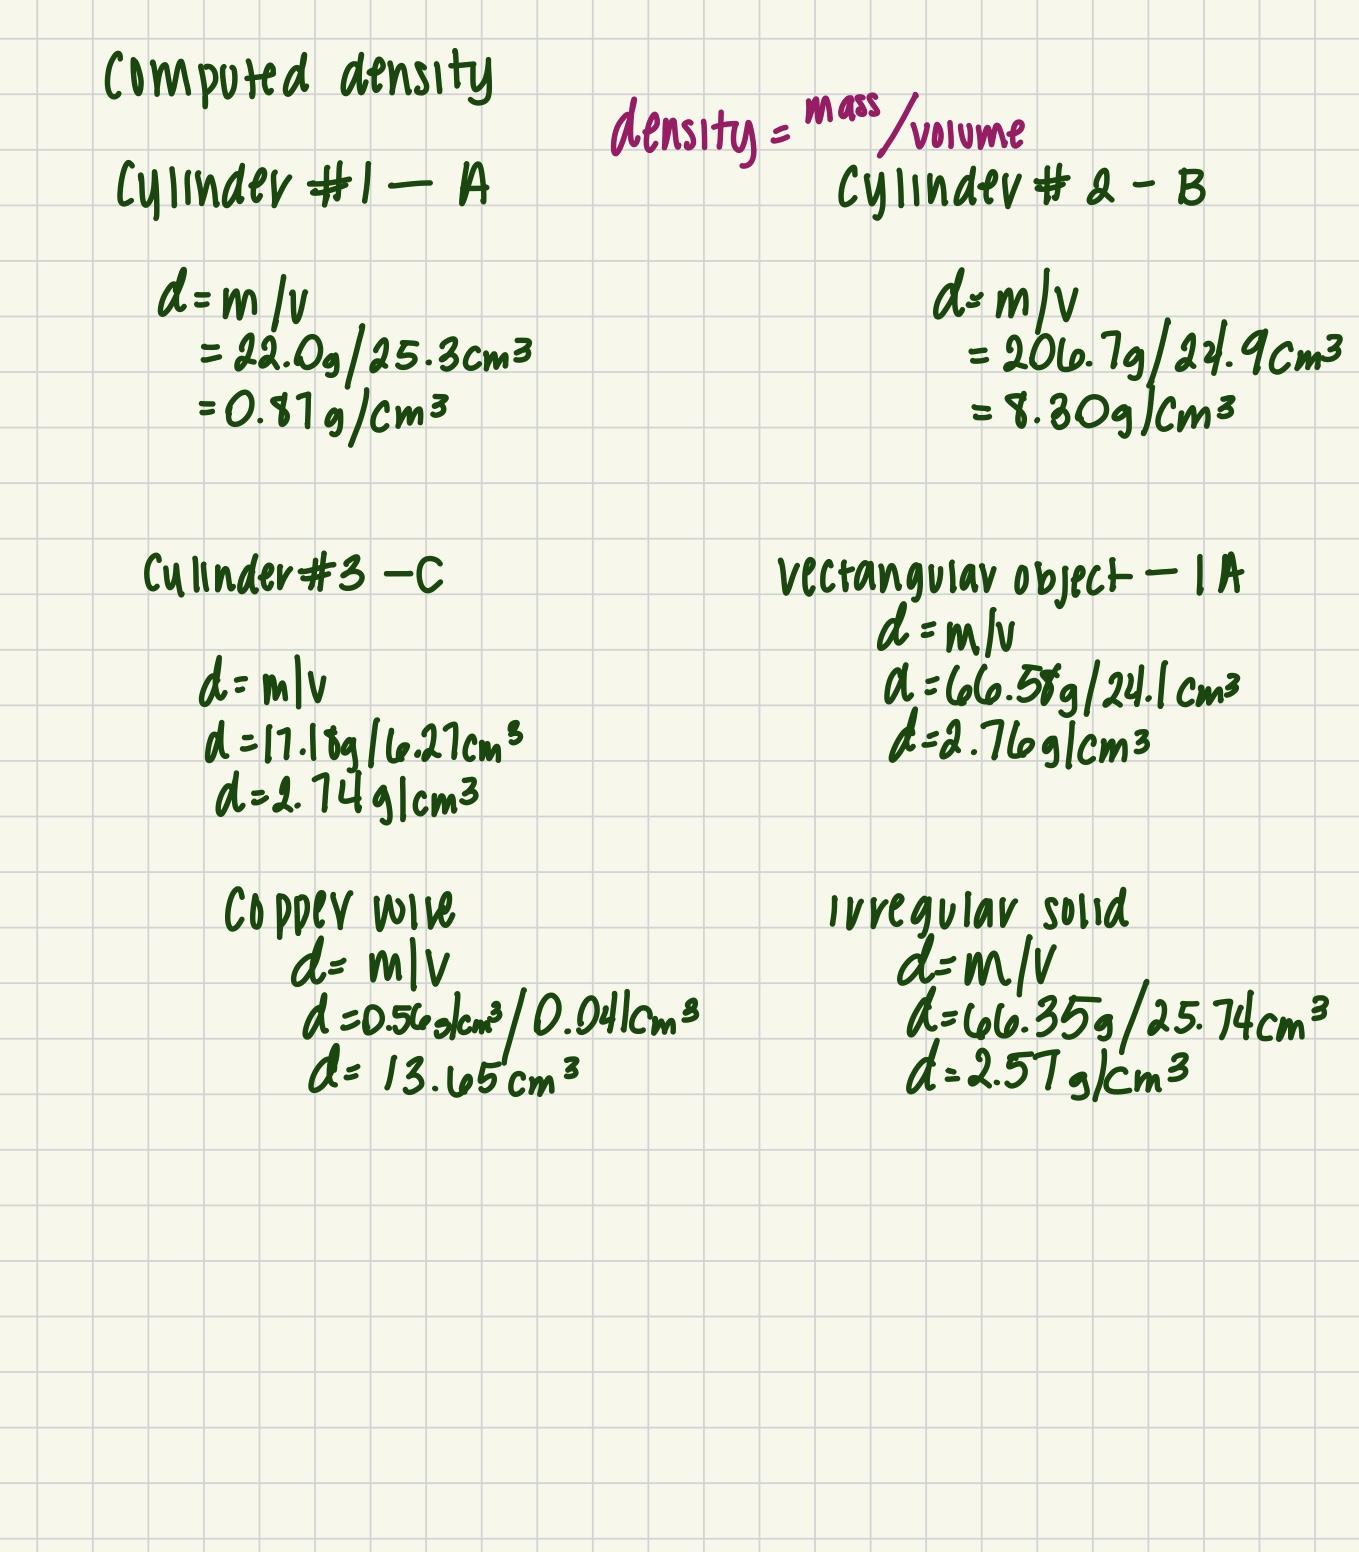 Computed density
density = mass/volume
Cylinder #1 — A
d = m/v
= 22.0g/25.3cm³
= 0.87 g/cm³
Cylinder # 2 - B
d= m/v
= 206.7g/24.9cm³
= 8.30g/cm³
Cylinder #3 - C
d= m/v
d=17.18g/6.27cm³
d=2.74g/cm³
rectangular object - 1A
d = m/v
d=66.58g/24.1cm³
d=2.76g/cm³
Copper wire
d= m/v
d=0.56g/cm³/0.041cm³
d= 13.65cm³
irregular solid
d=m/v
d=66.35g/25.74cm³
d=2.57g/cm³